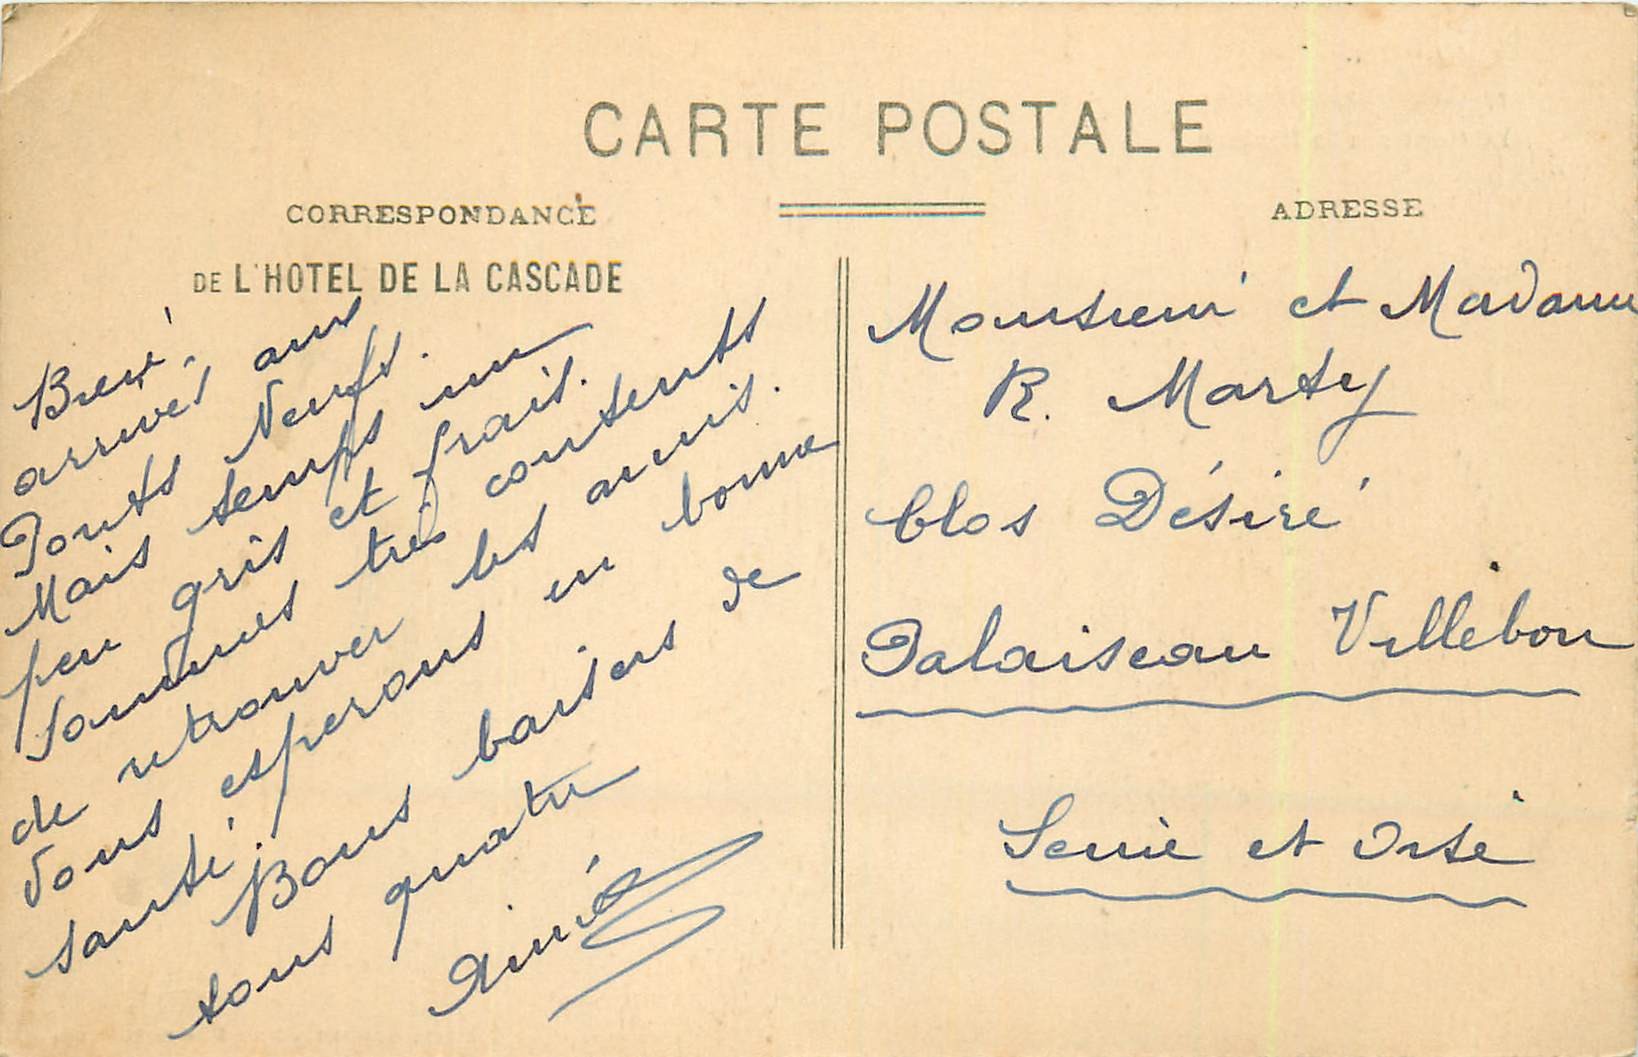 CARTE POSTALE
CORRESPONDANCE
DE L'HOTEL DE LA CASCADE
ADRESSE
Bien
arrivés aux
Ponts Neufs.
Mais temps un
peu gris et frais.
Sommes très contents
de retrouver les amis.
Vous esperons en bonne
santé.
Bons baisers de
tous quatre
Aimé
Monsieur et Madame
R. Marty
Clos Désiré
Palaiseau Villebon
Seine et Oise